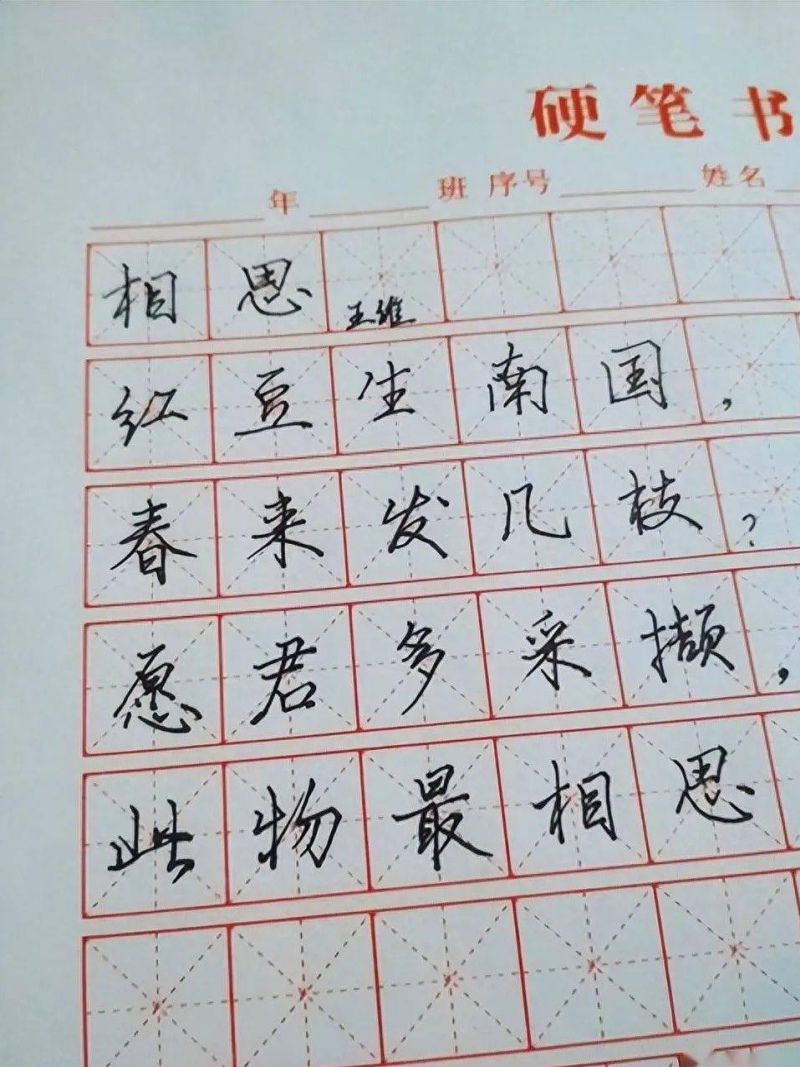 硬笔书
年 班 序号 姓名
相思 王维
红豆生南国，
春来发几枝？
愿君多采撷，
此物最相思